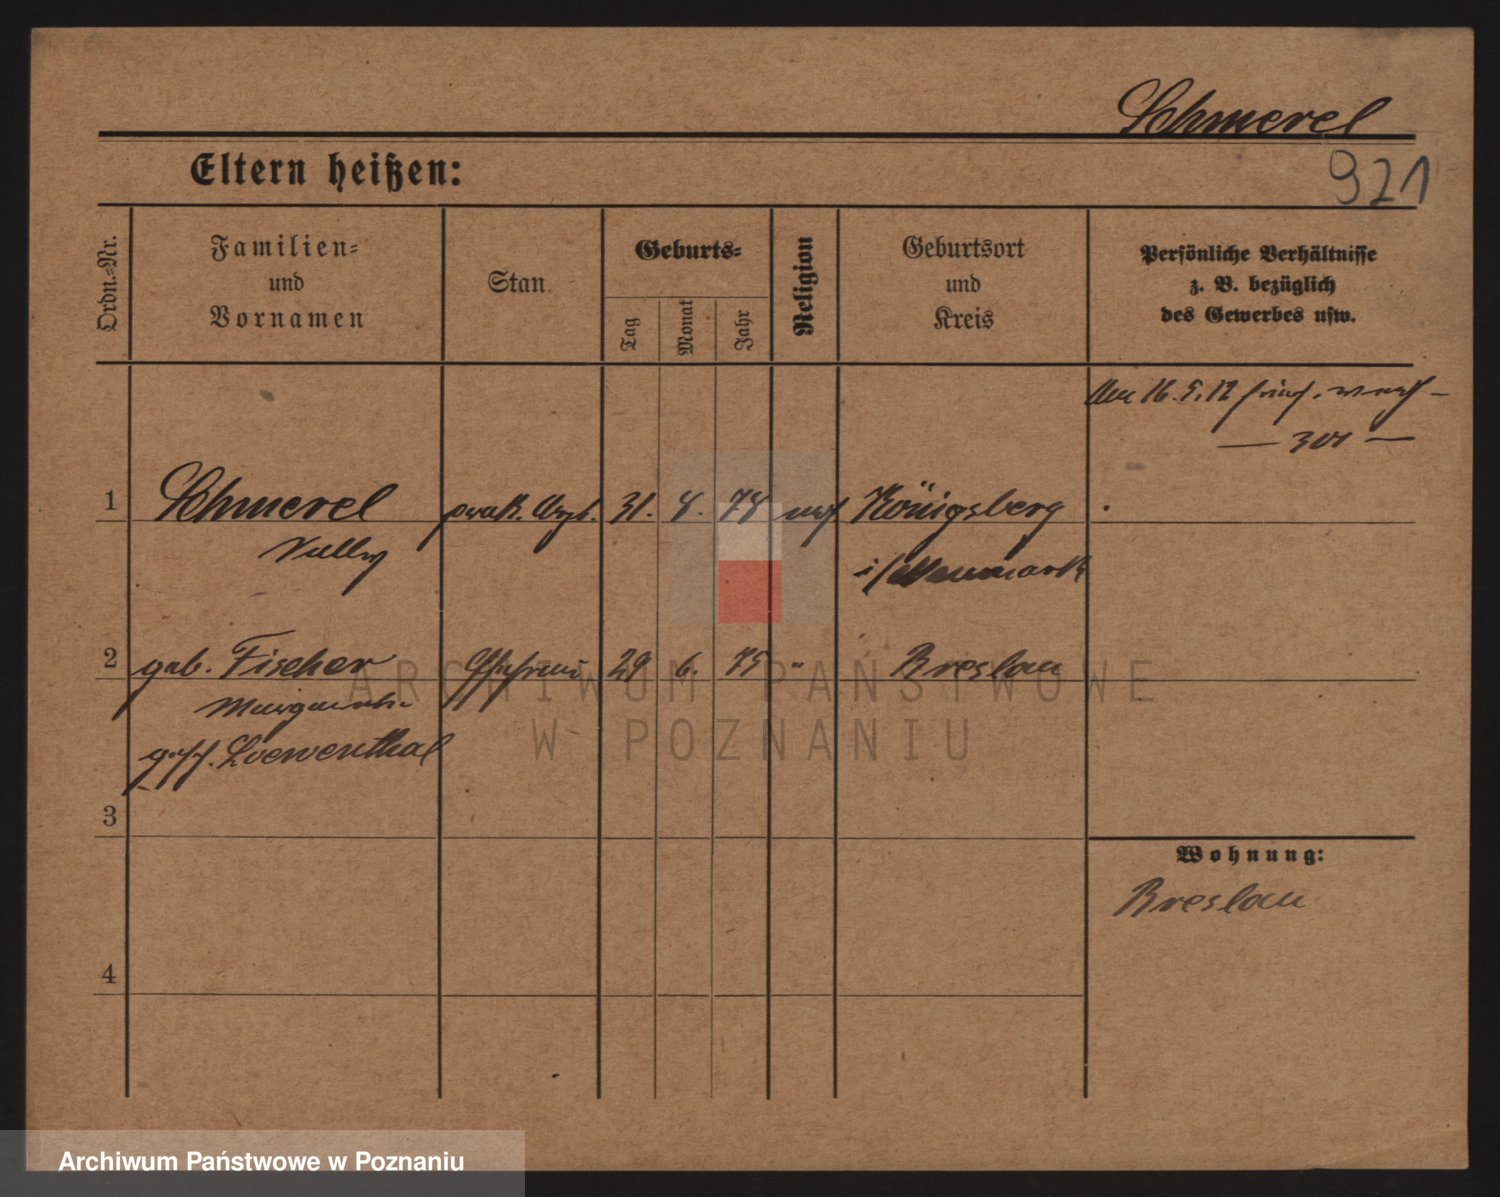 Schmerel
Eltern heißen:
921
Ordn.=Nr.
Familien=
und
Vornamen
Stan
Geburts=
Tag
Monat
Jahr
Religion
Geburtsort
und
Kreis
Persönliche Verhältnisse
z. B. bezüglich
des Gewerbes usw.
16. 5. 12
1
Schmerel
prakt. Arzt. 31. 8. 78
Königsberg
i/Neumark
2
geb. Fischer
Ehefrau 29 6. 75 "
Breslau
Margarethe
gesch. Loewenthal
3
Wohnung:
Breslau
4
ARCHIWUM PAŃSTWOWE
W POZNANIU
Archiwum Państwowe w Poznaniu